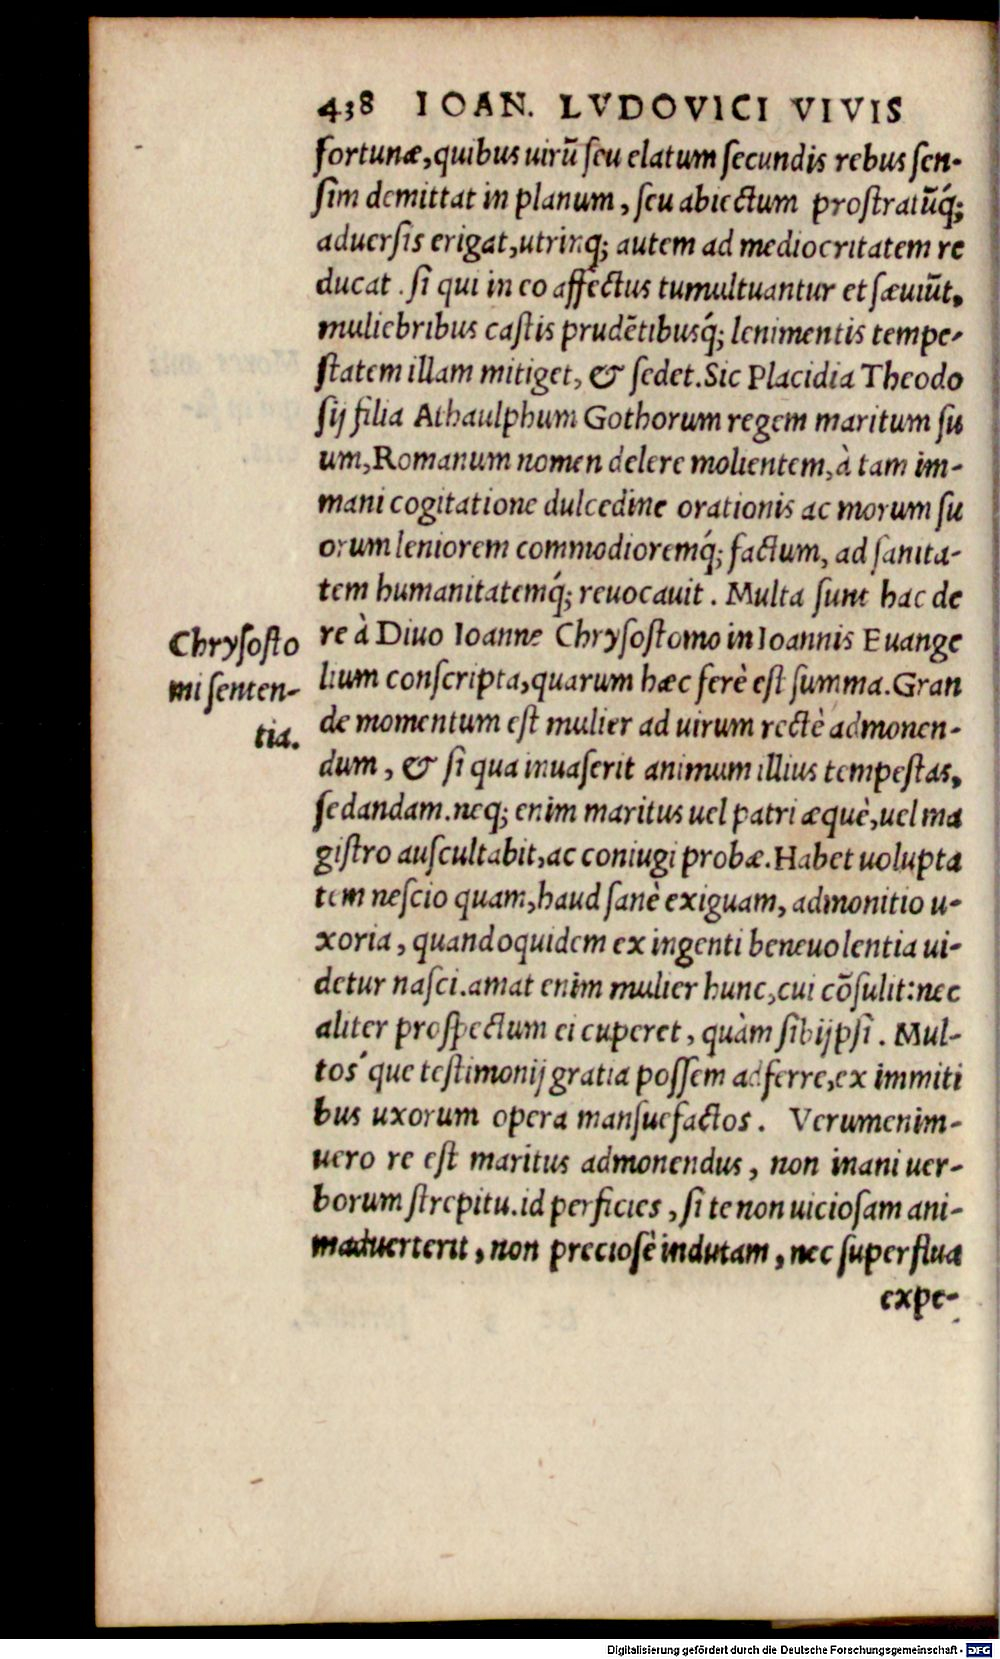 438 IOAN. LVDOVICI VIVIS
fortunæ, quibus uirũ seu elatum secundis rebus sen-
sim demittat in planum, seu abiectum prostratũq́;
aduersis erigat, utrinq; autem ad mediocritatem re
ducat. si qui in eo affectus tumultuantur et sæuiũt,
muliebribus castis prudẽtibusq́; lenimentis tempe-
statem illam mitiget, & sedet. Sic Placidia Theodo
sij filia Athaulphum Gothorum regem maritum su
um, Romanum nomen delere molientem, à tam im-
mani cogitatione dulcedine orationis ac morum su
orum leniorem commodioremq́; factum, ad sanita-
tem humanitatemq́; reuocauit. Multa sunt hac de
re à Diuo Ioanne Chrysostomo in Ioannis Euange
lium conscripta, quarum hæc ferè est summa. Gran
de momentum est mulier ad uirum rectè admonen-
dum, & si qua inuaserit animum illius tempestas,
sedandam. neq; enim maritus uel patri æquè, uel ma
gistro auscultabit, ac coniugi probæ. Habet uolupta
tem nescio quam, haud sanè exiguam, admonitio u-
xoria, quandoquidem ex ingenti beneuolentia ui-
detur nasci. amat enim mulier hunc, cui cõsulit: nec
aliter prospectum ei cuperet, quàm sibijpsi. Mul-
tos´que testimonij gratia possem adferre, ex immiti
bus uxorum opera mansuefactos. Verumenim-
uero re est maritus admonendus, non inani uer-
borum strepitu. id perficies, si te non uiciosam ani-
maduerterit, non preciosè indutam, nec superflua
expe-
Chrysosto
mi senten-
tia.
Digitalisierung gefördert durch die Deutsche Forschungsgemeinschaft - DFG